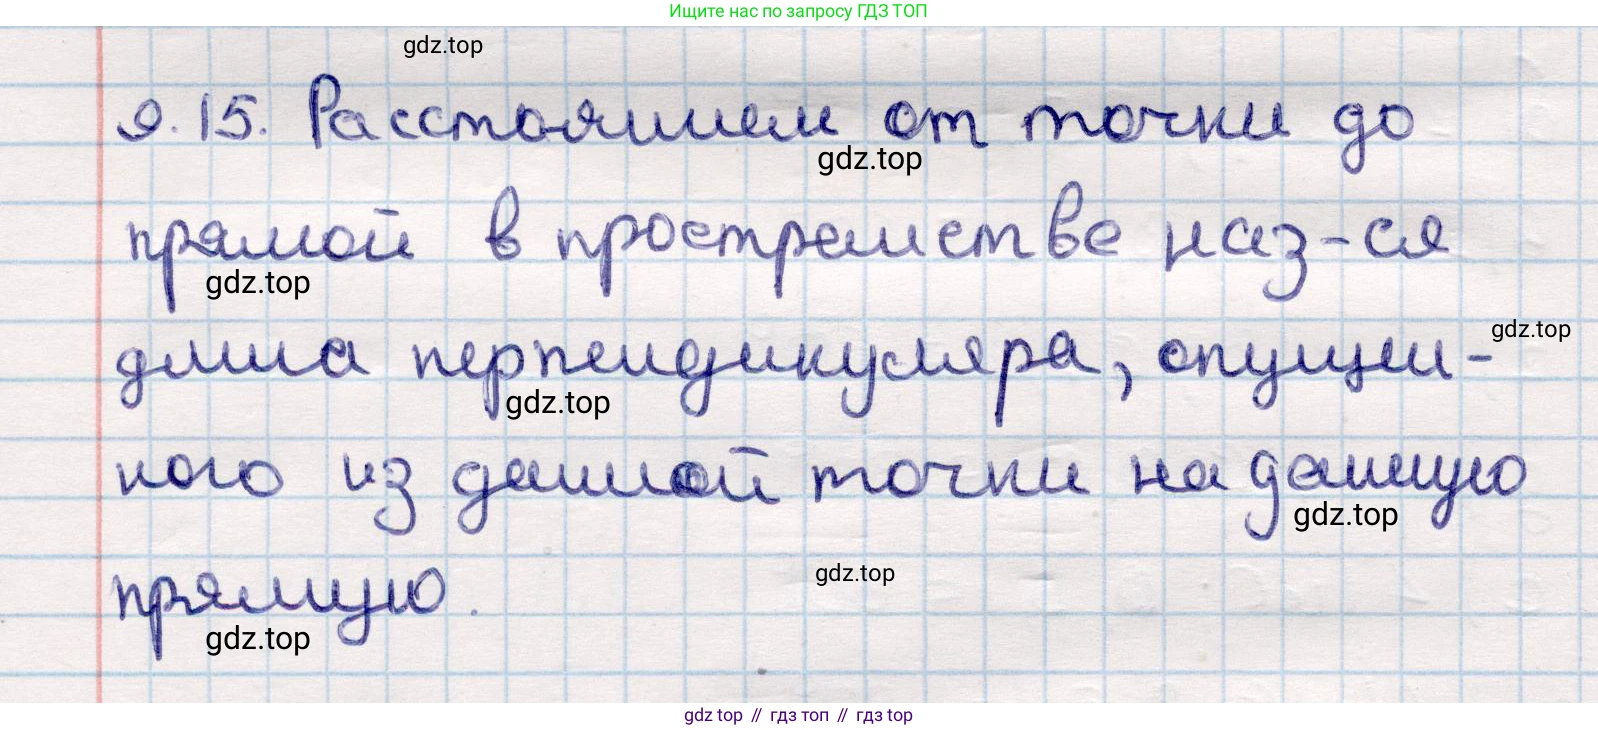 Ищите нас по запросу ГДЗ ТОП
gdz.top
9.15. Расстоянием от точки до
gdz.top
прямой в пространстве наз-ся
gdz.top
gdz.top
длина перпендикуляра, опущен-
gdz.top
ного из данной точки на данную
gdz.top
gdz.top
прямую.
gdz.top
gdz top // гдз топ // гдз top